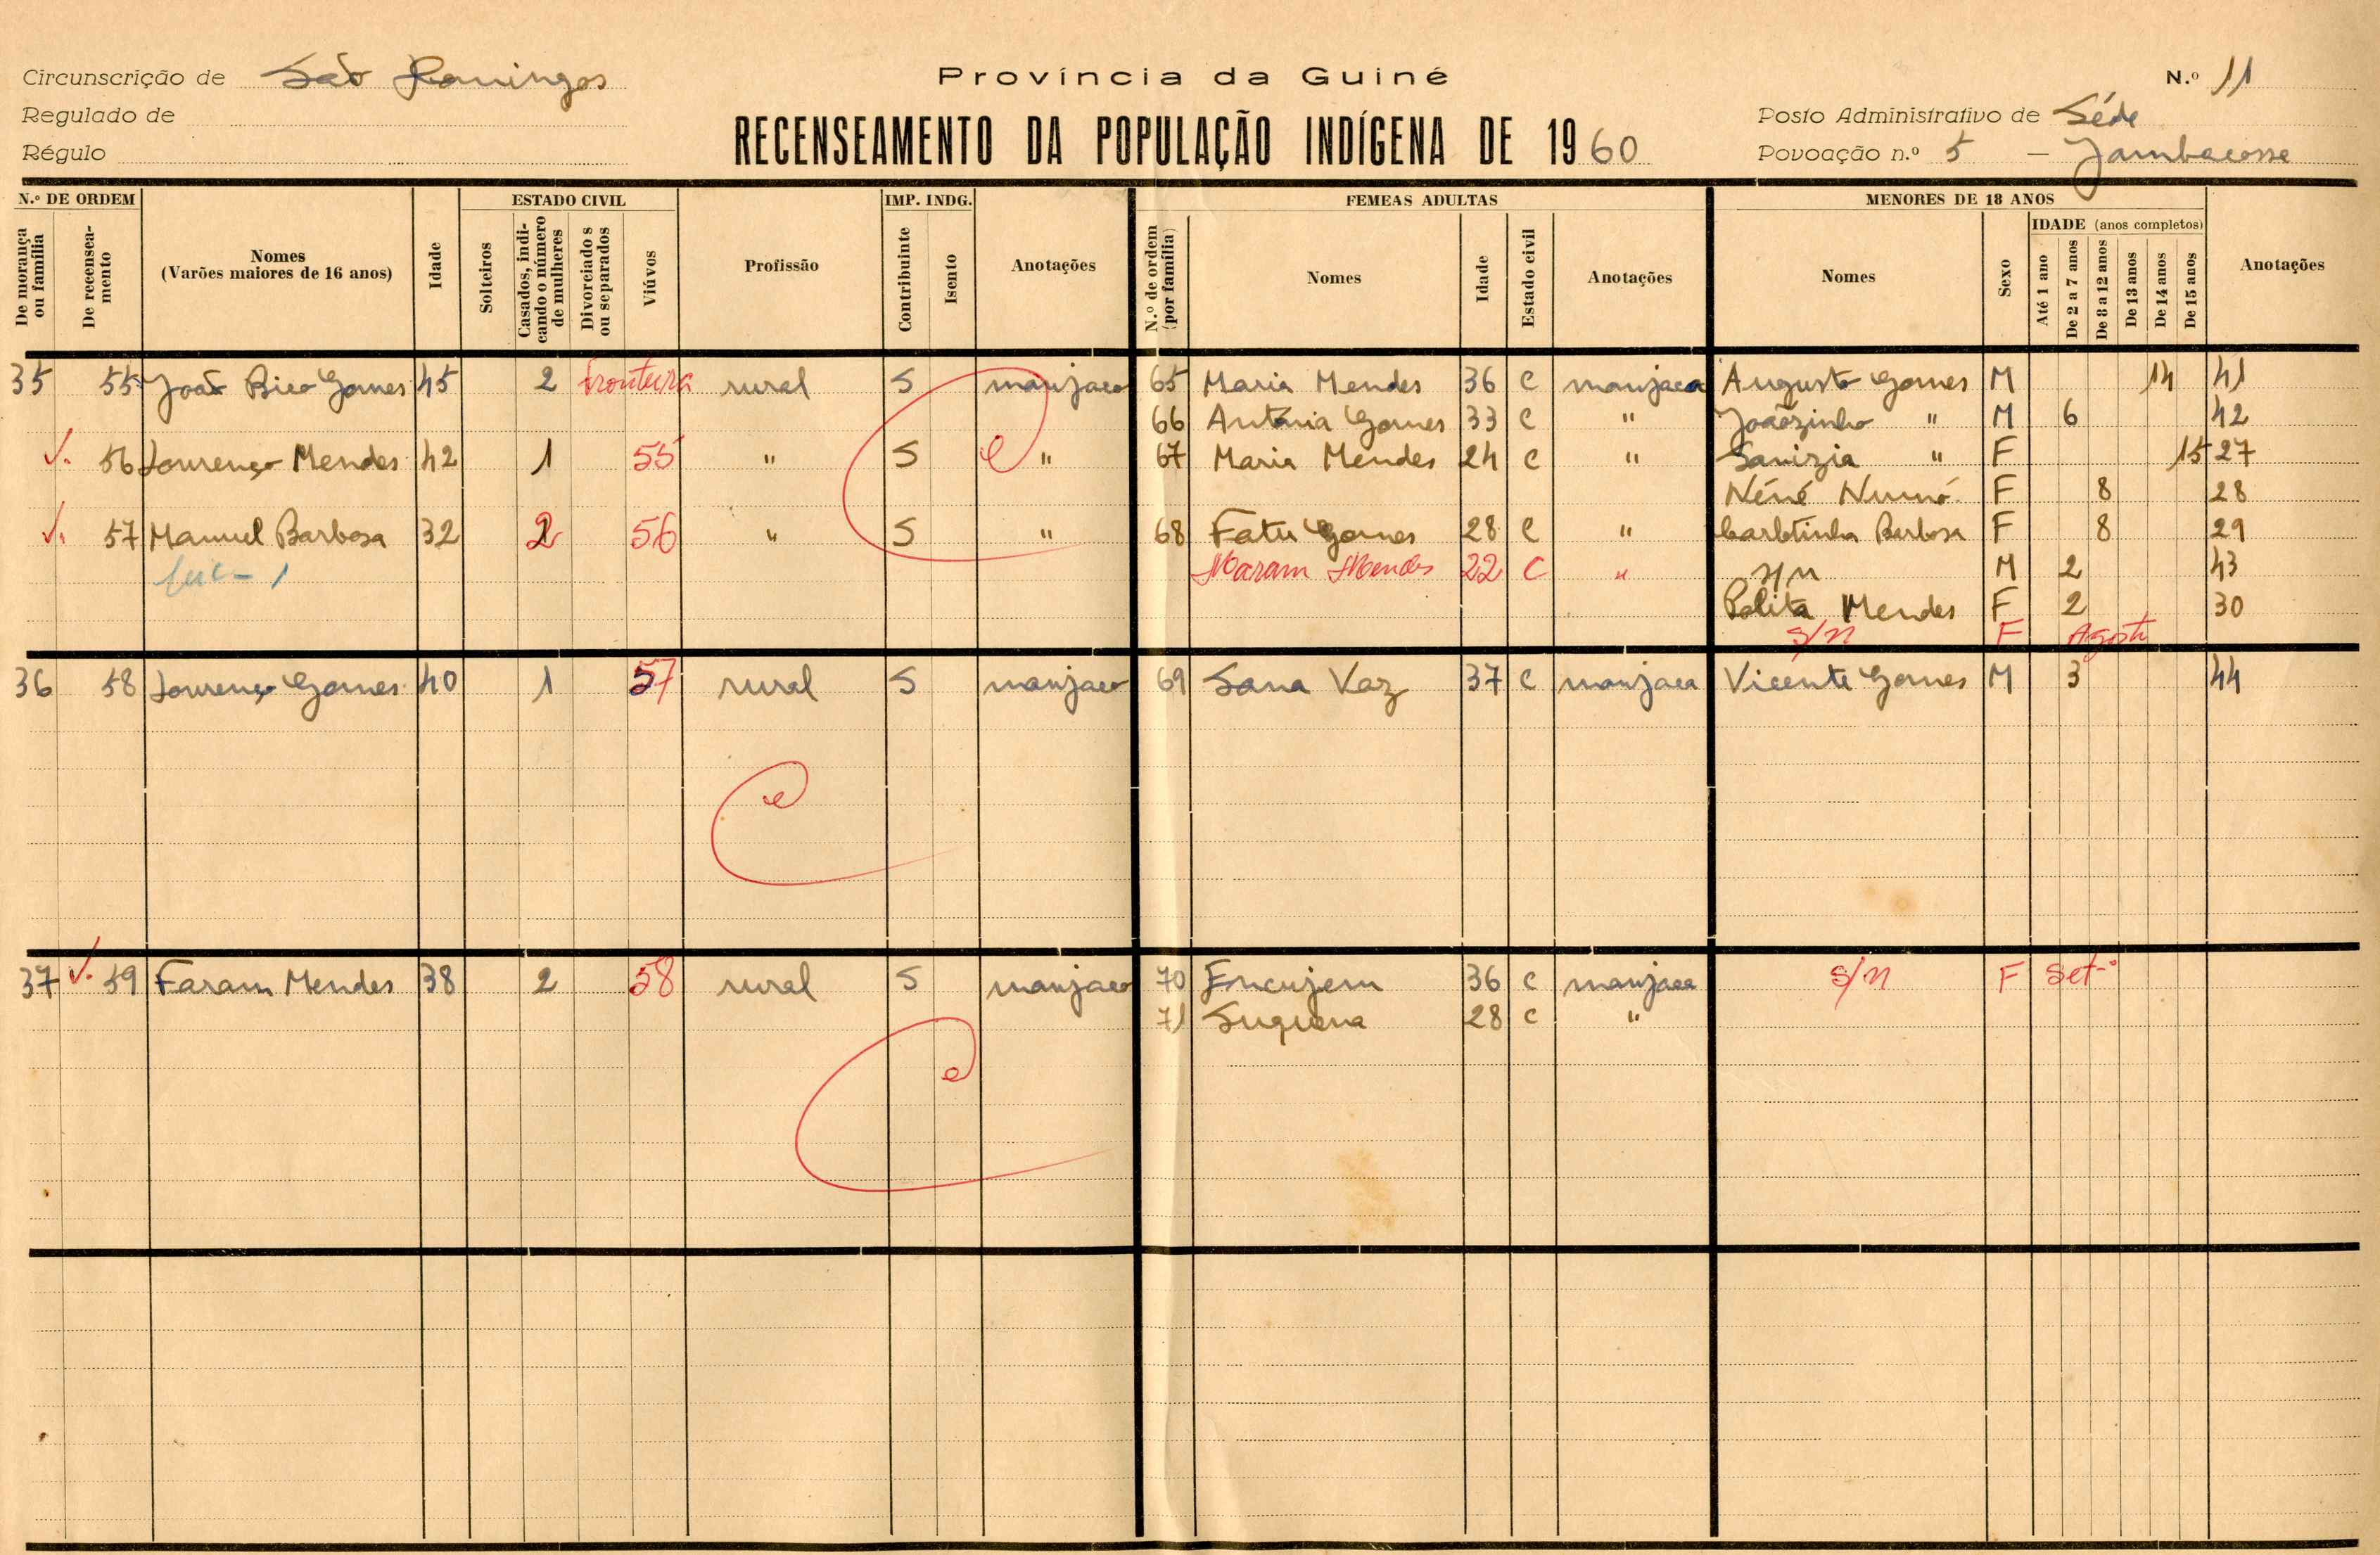 Circunscrição de São Domingos
Província da Guiné
N.º 11
Regulado de
Régulo
RECENSEAMENTO DA POPULAÇÃO INDÍGENA DE 1960
Posto Administrativo de Séde
Povoação n.º 5 — Jambacosse
N.º DE ORDEM
De morança ou família
De recenseamento
Nomes (Varões maiores de 16 anos)
Idade
ESTADO CIVIL
Solteiros
Casados, indicando o número de mulheres
Divorciados ou separados
Viúvos
Profissão
IMP. INDG.
Contribuinte
Isento
Anotações
FEMEAS ADULTAS
N.º de ordem (por família)
Nomes
Idade
Estado civil
Anotações
MENORES DE 18 ANOS
Nomes
Sexo
IDADE (anos completos)
Até 1 ano
De 2 a 7 anos
De 8 a 12 anos
De 13 anos
De 14 anos
De 15 anos
Anotações
35 55 João Bico Gomes 45 2 fronteira rural S manjaco 65 Maria Mendes 36 C manjaca Augusto Gomes M 14 41
66 Antónia Gomes 33 C " Joãozinho " M 6 42
56 Lourenço Mendes 42 1 55 " S " 67 Maria Mendes 24 C " Sanizia " F 15 27
Néné F 8 28
57 Manuel Barbosa 32 2 56 " S " 68 Fatu Gomes 28 C " Carlotinha Barbosa F 8 29
Maram Mendes 22 C " s/n M 2 43
Polita Mendes F 2 30
s/n F Agosto
36 58 Lourenço Gomes 40 1 57 rural S manjaco 69 Sana Vaz 37 C manjaca Vicente Gomes M 3 44
37 59 Faram Mendes 38 2 58 rural S manjaco 70 Encujem 36 C manjaca s/n F Set-º
71 Suquena 28 C "